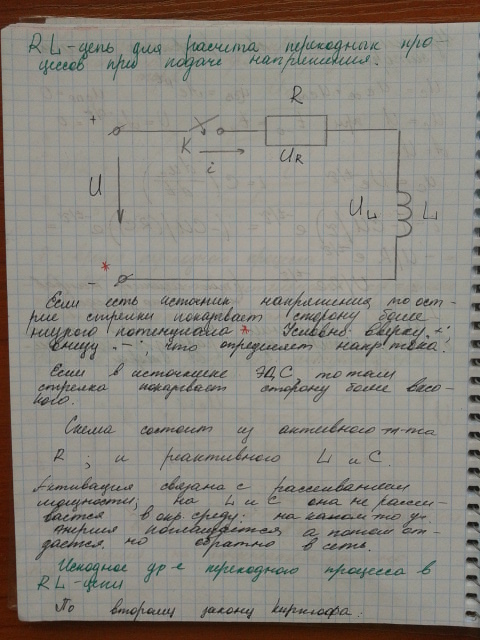 RL-цепь для расчета переходных про-
цессов при подаче напряжения.
R
+
К
i
UR
U
UL
L
*
-
Если есть источник напряжения, то ост-
рие стрелки показывает сторону более
низкого потенциала * Условно вверху "+"
внизу "-", что определяет напр. тока!
Если в источнике ЭДС, то там
стрелка показывает сторону более высо-
кого.
Схема состоит из активного эл-та
R ; и реактивного L и C.
Активация связана с рассеиванием
мощности; на L и C она не рассеи-
вается в окр. среду. на каком то уч.
энергия поглощается, а потом от-
дается но обратно в сеть.
Исходное ур-е переходного процесса в
RL-цепи
По второму закону Кирхгофа: